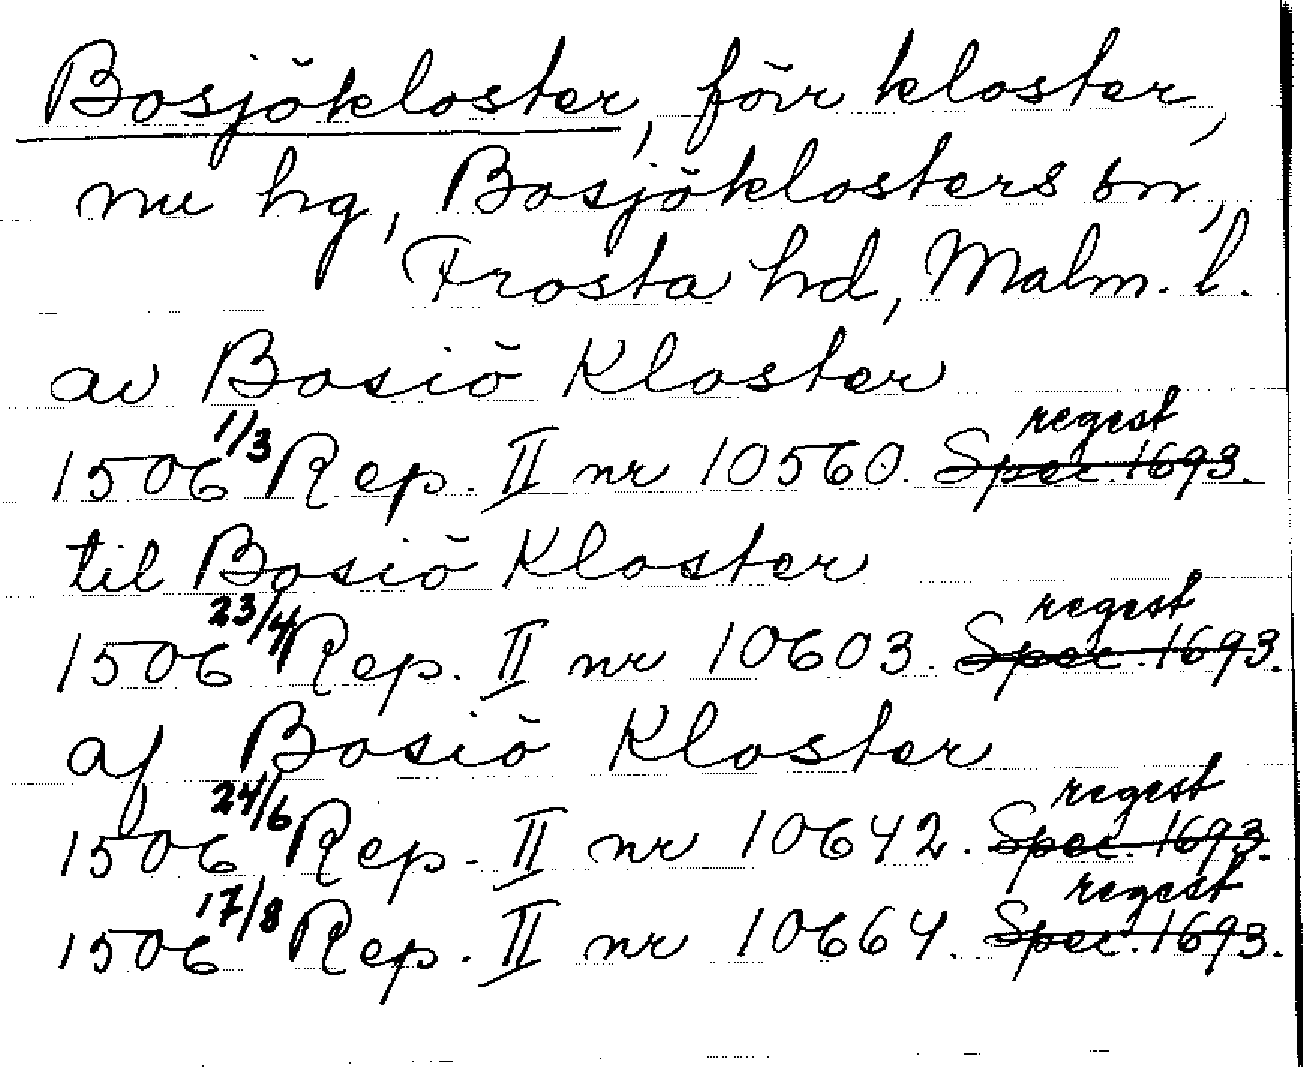 Bosjökloster, förr kloster,
nu hg, Bosjöklosters sn,
Frosta hd, Malm. l.
av Bosiö Kloster
1506 1/3 Rep. II nr 10560. Spec. 1693. regest
til Bosiö Kloster
1506 23/4 Rep. II nr 10603. Spec. 1693. regest
af Bosiö Kloster
1506 24/6 Rep. II nr 10642. Spec. 1693. regest
1506 17/8 Rep. II nr 10664. Spec. 1693. regest